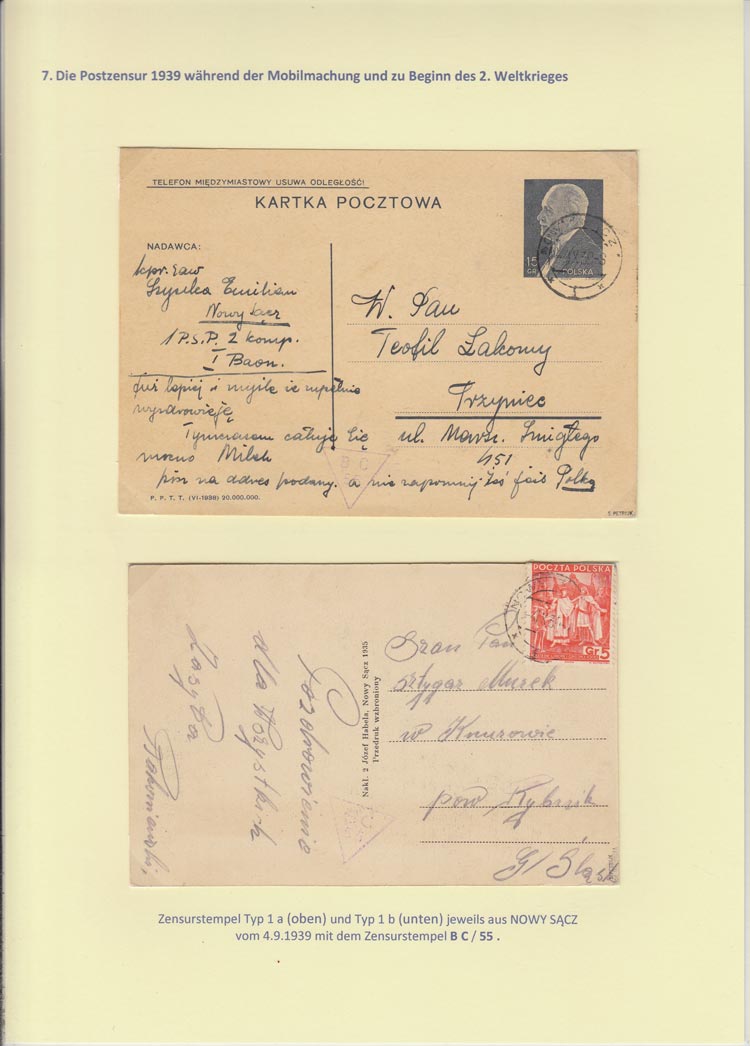 7. Die Postzensur 1939 während der Mobilmachung und zu Beginn des 2. Weltkrieges
TELEFON MIĘDZYMIASTOWY USUWA ODLEGŁOŚĆ!
KARTKA POCZTOWA
15
GR
POLSKA
NADAWCA:
Emilian
Nowy Sącz
1 P.S.P. 2 komp.
I Baon.
już lepiej i myślę że zupełnie
wyzdrowieję
Tymczasem całuję Cię
mocno Milek
W. Pan
Teofil Łakomy
Trzyniec
ul. Marsz. Śmigłego
451
pisz na adres podany. a nie zapomnij żeś jest Polką
B C
P. P. T. T. (VI-1938) 20.000.000.
S. PETRIUK
POCZTA POLSKA
Gr. 5
NOWY
Pozdrowienia
dla Wszystkich
Nakł. 2 Józef Habela, Nowy Sącz 1935
Przedruk wzbroniony
Szan Pan
sztygar Murek
w Knurowie
pow. Rybnik
G/Śląsk
Zensurstempel Typ 1 a (oben) und Typ 1 b (unten) jeweils aus NOWY SĄCZ
vom 4.9.1939 mit dem Zensurstempel B C / 55 .